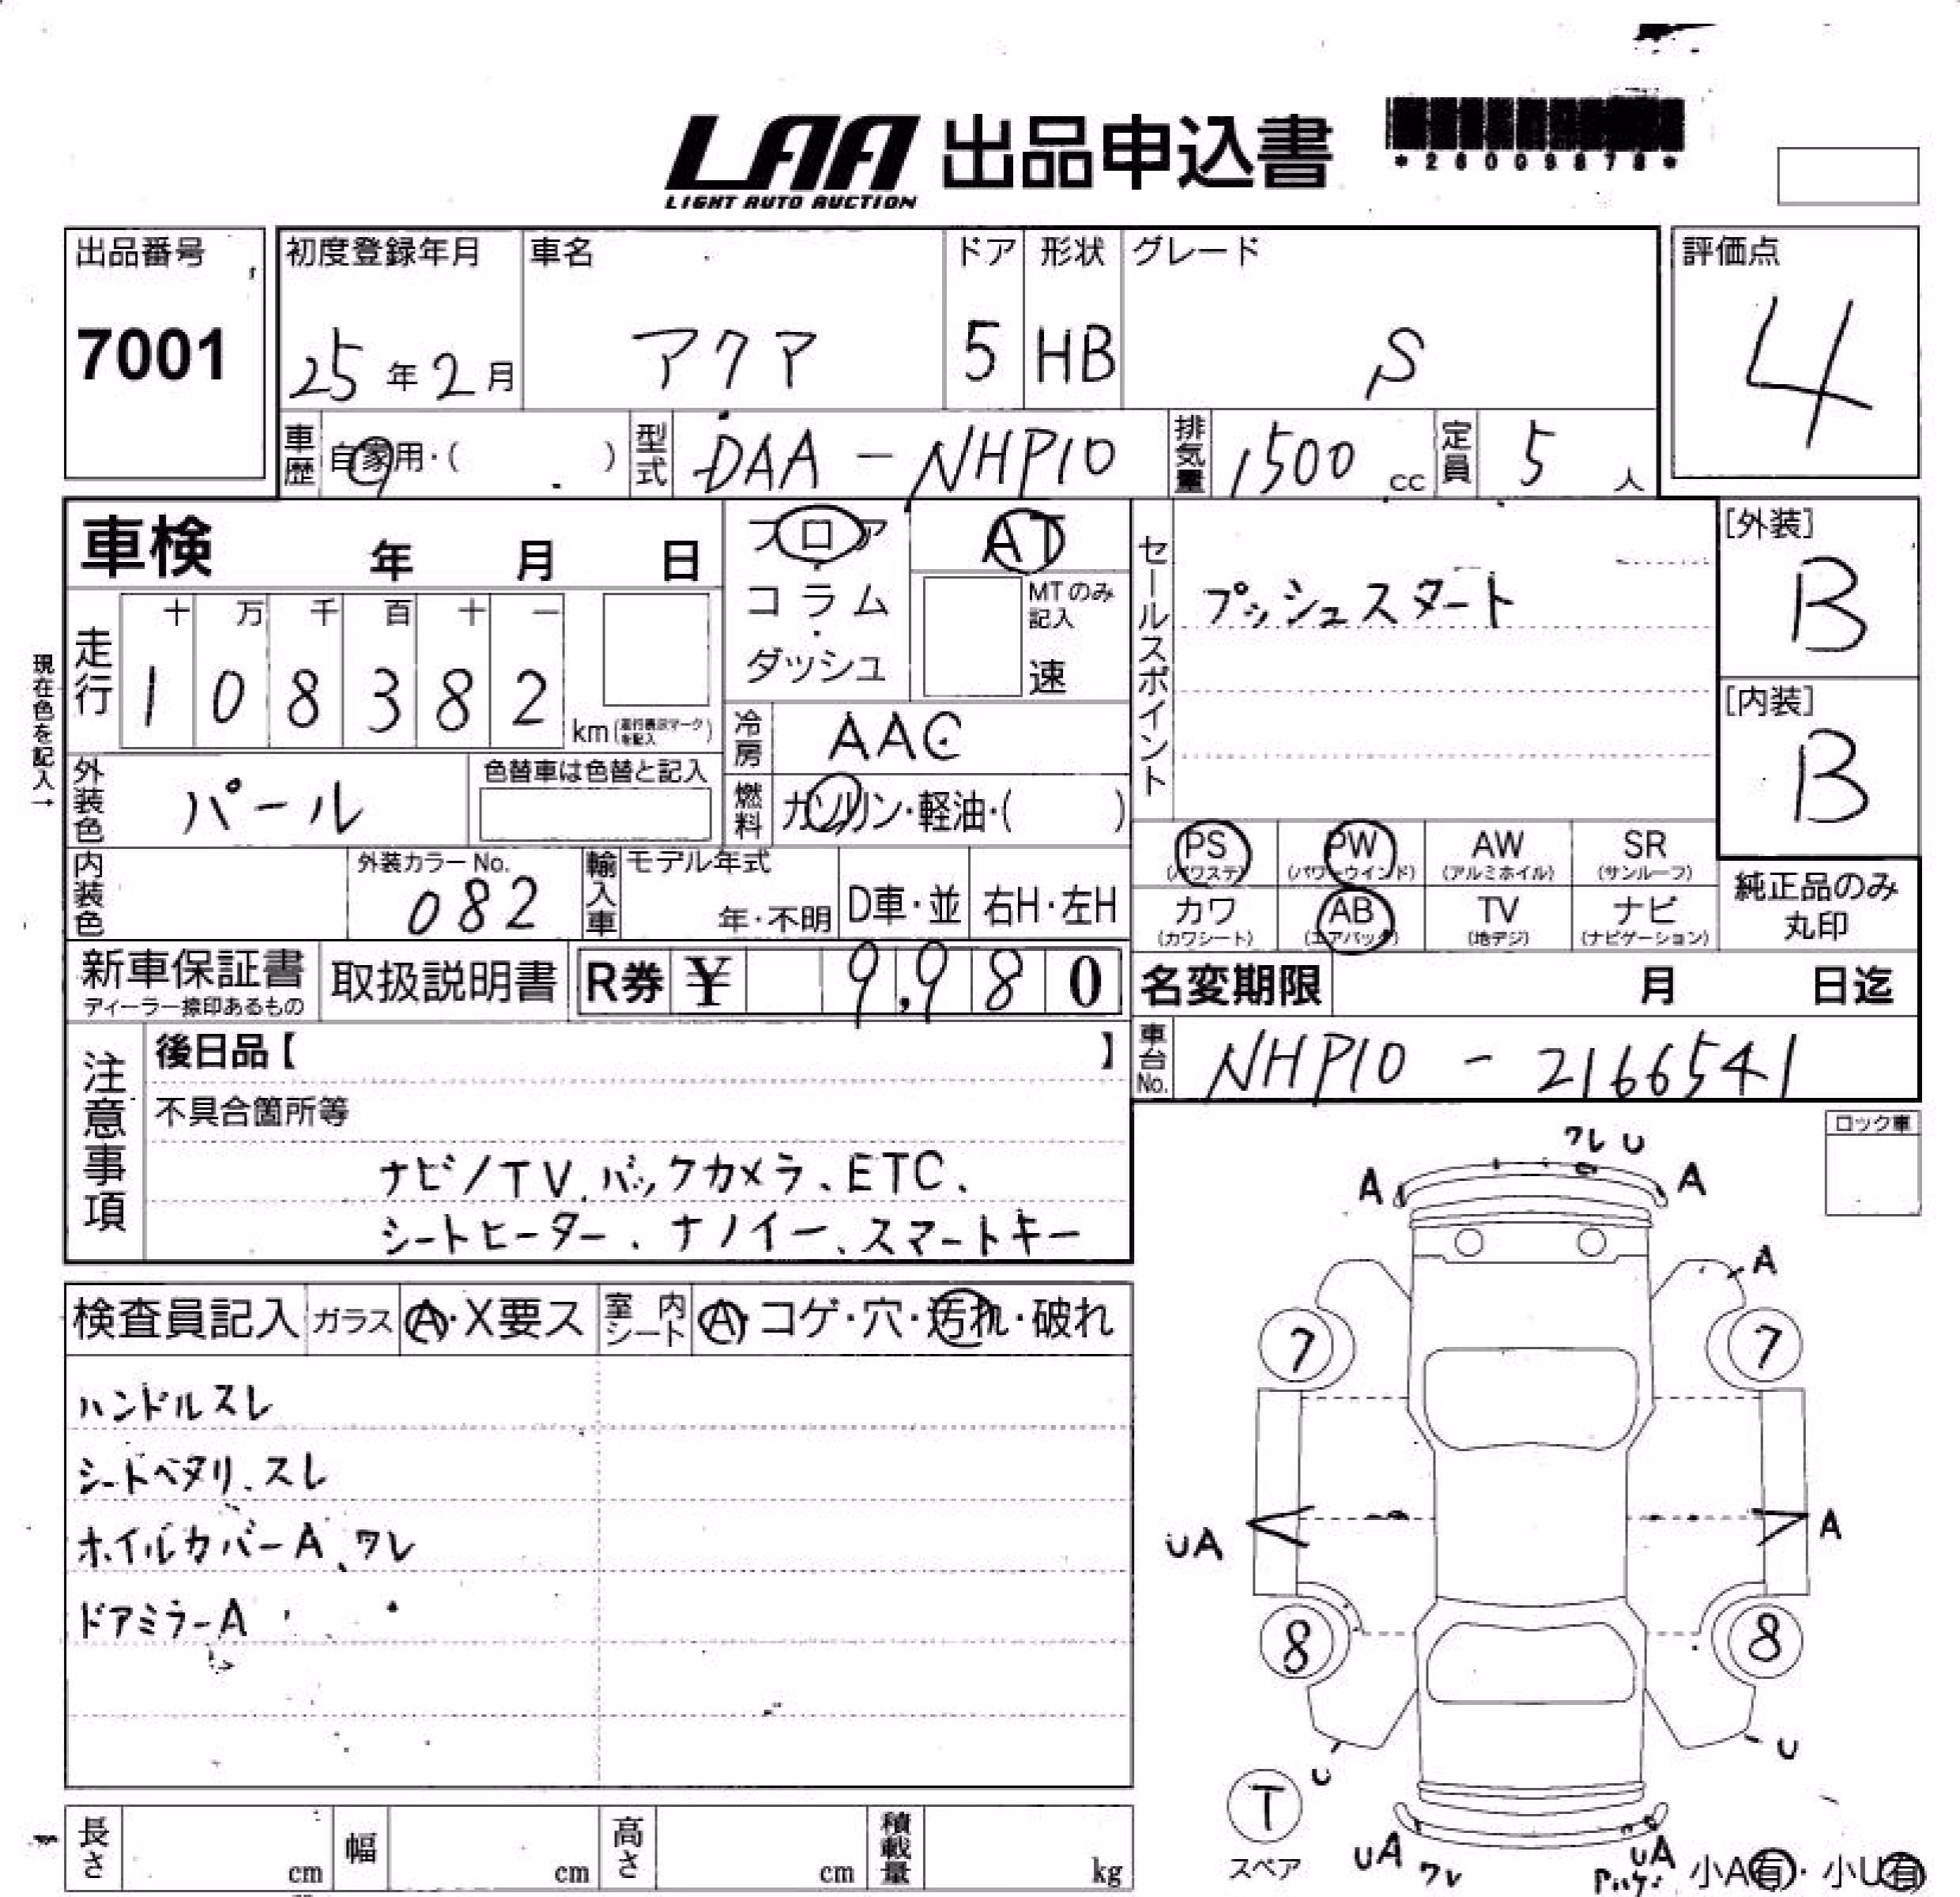 LAA 出品申込書
LIGHT AUTO AUCTION
出品番号
7001
初度登録年月
25年2月
車名
アクア
ドア
5
形状
HB
グレード
S
評価点
4
車歴 自家用・( )
型式 DAA-NHP10
排気量 1500cc
定員 5人
車検 年 月 日
フロア・コラム・ダッシュ
AT
MTのみ記入
速
セールスポイント
プッシュスタート
[外装]
B
[内装]
B
現在色を記入→
走行
十 万 千 百 十 一
1 0 8 3 8 2 km
冷房 AAC
外装色 パール
色替車は色替と記入
燃料 ガソリン・軽油・( )
内装色
外装カラーNo.
082
輸入車
モデル年式
年・不明
D車・並
右H・左H
PS (パワステ)
PW (パワーウインド)
AW (アルミホイル)
SR (サンルーフ)
カワ (カワシート)
AB (エアバック)
TV (地デジ)
ナビ (ナビゲーション)
純正品のみ
丸印
新車保証書
ディーラー捺印あるもの
取扱説明書
R券 ¥ 9,980
名変期限 月 日迄
車台No. NHP10-2166541
注意事項
後日品【 】
不具合箇所等
ナビ/TV、バックカメラ、ETC、
シートヒーター、ナノイー、スマートキー
ロック車
検査員記入
ガラス A・X要ス
室内シート A・コゲ・穴・汚れ・破れ
ハンドルスレ
シートヘタリ、スレ
ホイルカバーA、ワレ
ドアミラーA
ワレ U
A A
A
7 7
UA A
8 8
U U
T
スペア
UA ワレ UA
小A有・小U有
長さ cm
幅 cm
高さ cm
積載量 kg